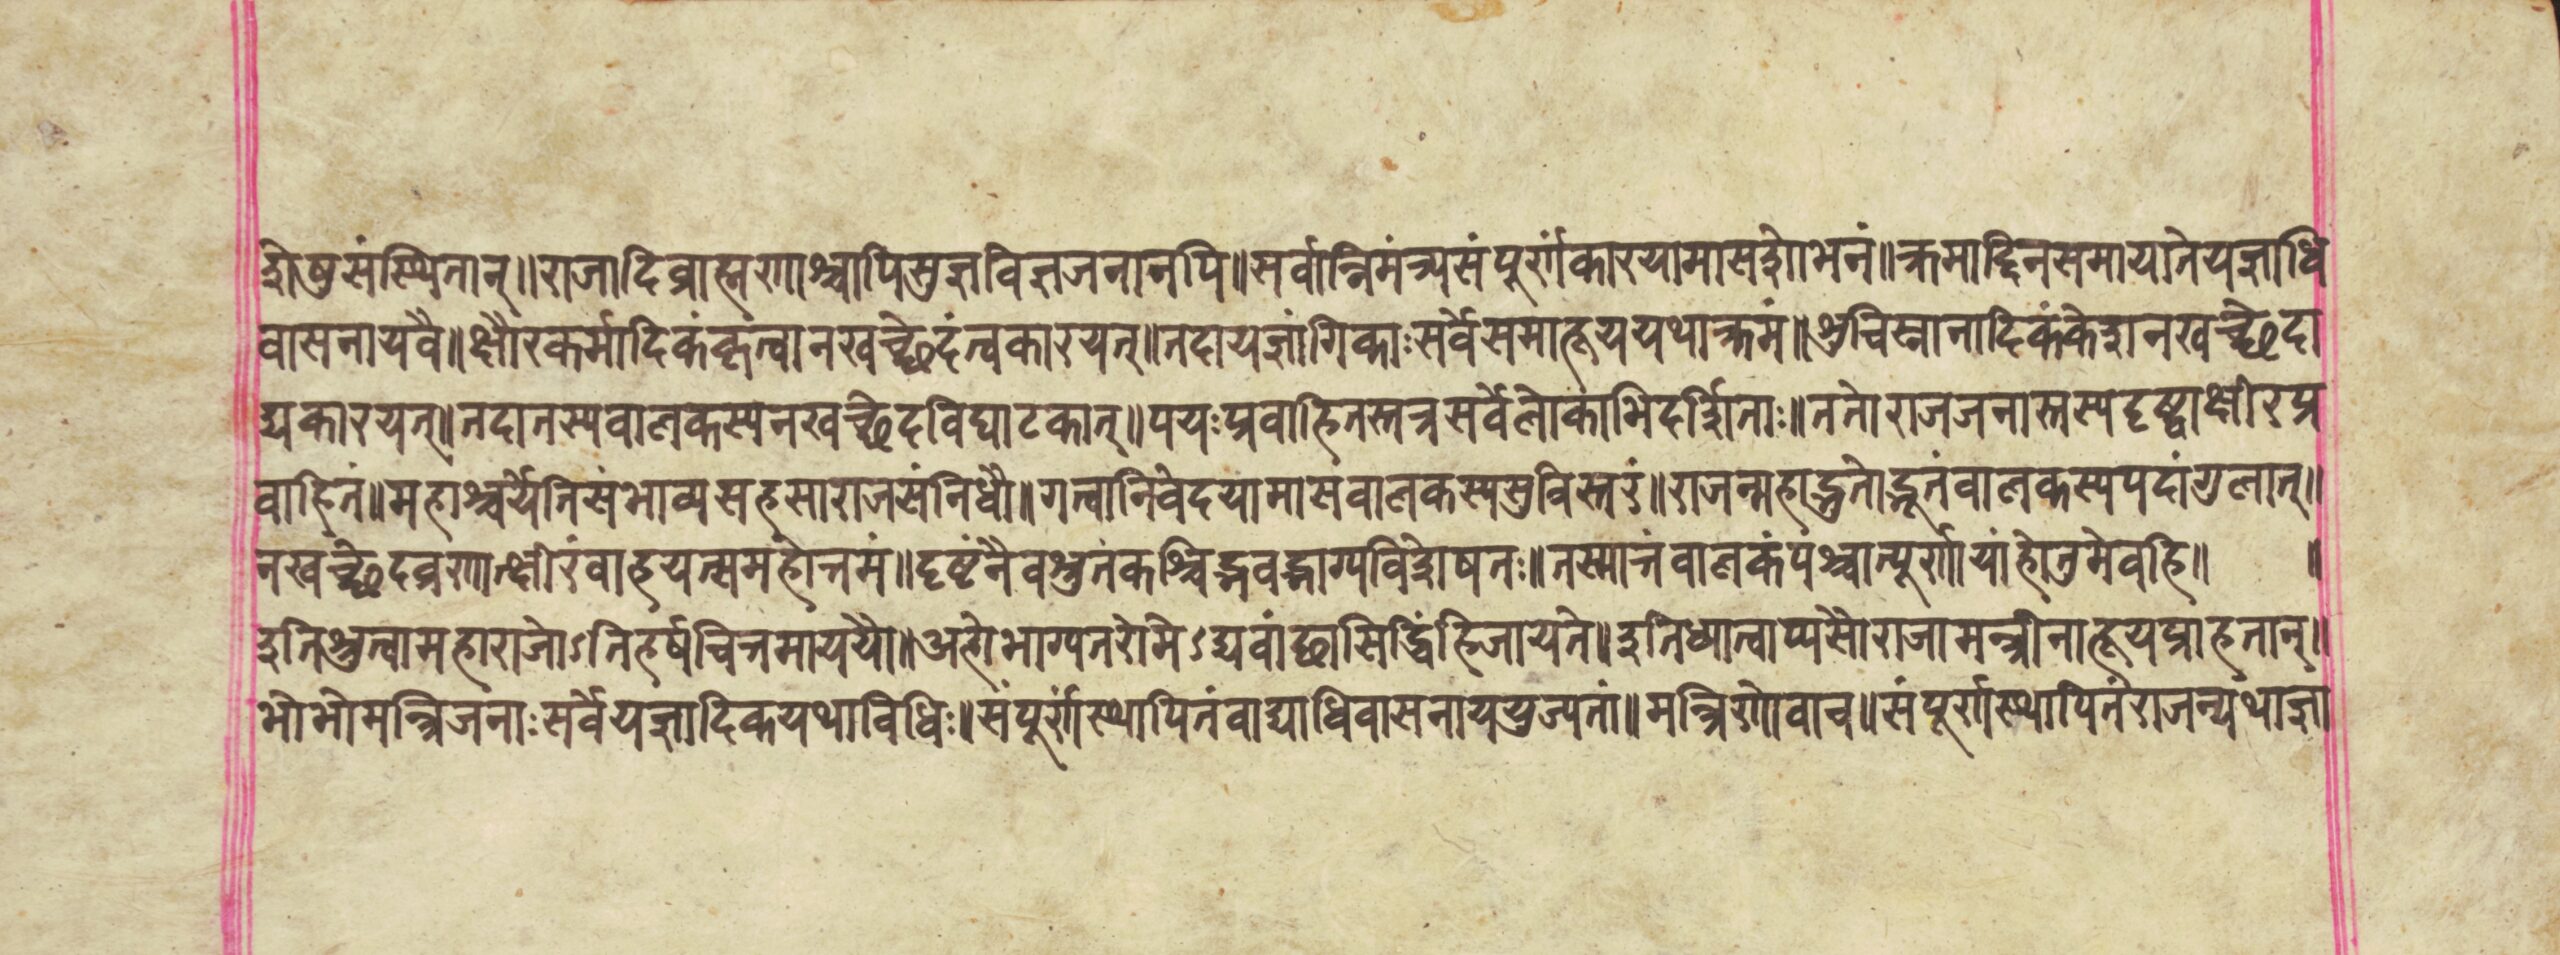 शेषु संस्थितान्॥ राजादिब्राह्मणाश्चापि सुज्ञविज्ञजनानपि॥ सर्वान्निमंत्र्य संपूर्णं कारयामास शोभनं॥ क्रमाद्दिनसमायाते यज्ञाधि
वासनाय वै॥ क्षौरकर्मादिकं कृत्वा नखच्छेदं त्वकारयत्॥ तदा यज्ञांगिकाः सर्वे समाहूय यथाक्रमं॥ शुचिस्नानादिकं केशनखच्छेदा
द्यकारयत्॥ तदा तस्य बालकस्य नखच्छेदविघाटकात्॥ पयःप्रवाहितस्तत्र सर्वे लोकाभिदर्शिताः॥ ततो राजजनास्तस्य दृष्ट्वा क्षीरप्र
वाहितं॥ महाश्चर्येति संभाव्य सहसा राजसंनिधौ॥ गत्वा निवेदयामास बालकस्य सुविस्तरं॥ राजन्महाद्भुतोद्भूतं बालकस्य पदांगुलात्॥
नखच्छेदव्रणात्क्षीरं वाहयत्समहोत्तमं॥ दृष्टं नैव श्रुतं कश्चिद्भवद्भाग्यविशेषतः॥ तस्मात्तं बालकं पश्चात्पूर्णायां होतुमेव हि॥ ॥
इति श्रुत्वा महाराजोऽतिहर्षचित्तमाययौ॥ अहो भाग्यतरो मेऽद्य वांछासिद्धिं हि जायते॥ इति ध्यात्वाप्यसौ राजा मन्त्रीनाहूय प्राह तान्॥
भो भो मन्त्रिजनाः सर्वे यज्ञादिकयथाविधिः॥ संपूर्णं स्थापितं वाद्याधिवासनाय युज्यतां॥ मन्त्रिणोवाच॥ संपूर्णस्थापितं राजन्यथाज्ञा